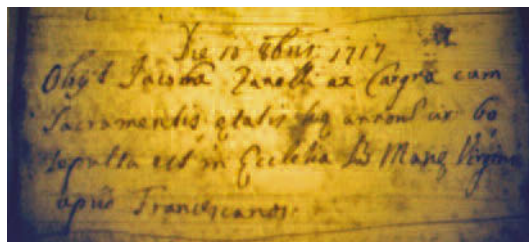 Die 10 8bris 1717
Obijt Jacoba Zanelli ex Cargna cum
Sacramentis etatis suę annoru cir 60
sepulta est in Ecclesia Bs Marię Virginis
apud Franciscanos.